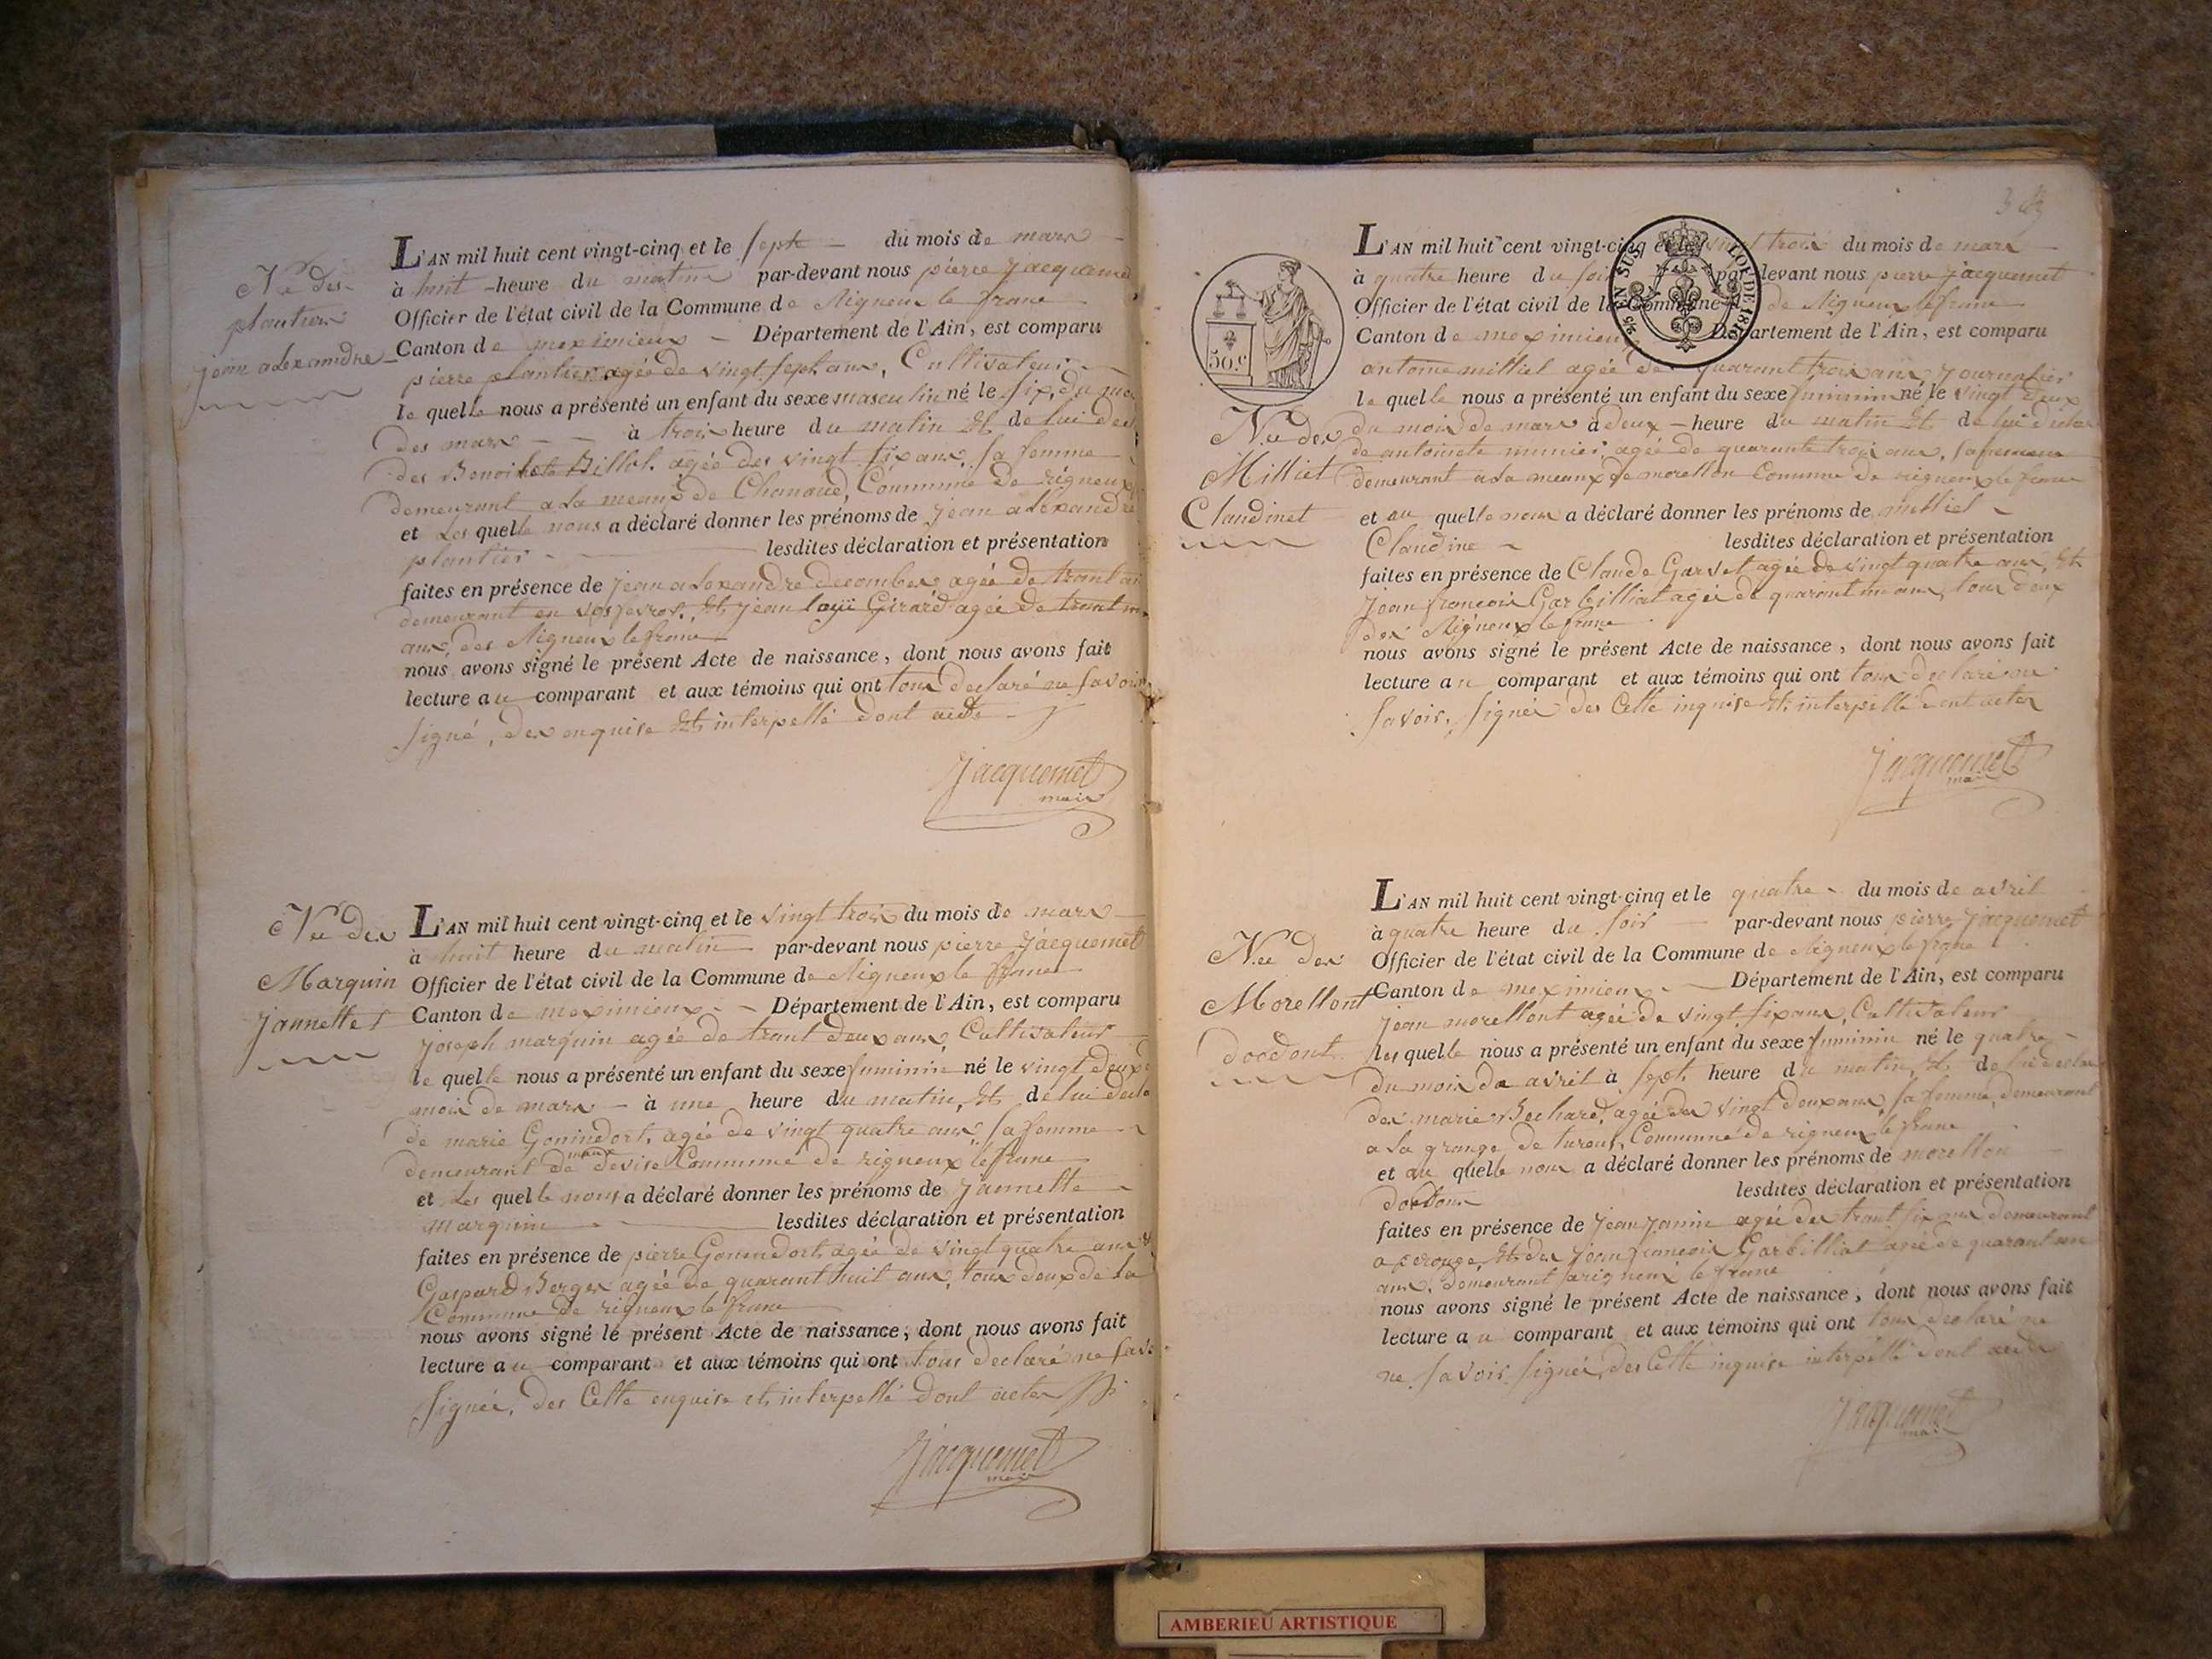 Née des
plantier
jean alexandre
L'AN mil huit cent vingt-cinq et le septe du mois de mars
à huit heure du matin par-devant nous pierre Jacquemet
Officier de l'état civil de la Commune de Rigneux le franc
Canton de meximieux Département de l'Ain, est comparu
pierre plantier agée de vingt sept ans, Cultivateur
le quelle nous a présenté un enfant du sexe masculin né le six, du moi
des mars à trois heure du matin Et de lui
des Benoite Billot, agée des vingt six ans, sa femme
demeurant a la de Chanaud, Commune De rigneux
et les quelle nous a déclaré donner les prénoms de jean alexandre
plantier lesdites déclaration et présentation
faites en présence de jean alexandre decomber agée de trant
demeurant en Et jean Girard agée De trant
ans, des Rigneux le franc
nous avons signé le présent Acte de naissance, dont nous avons fait
lecture au comparant et aux témoins qui ont tous declaré ne savoir
signé, des enquise Et interpellé dont acte
Jacquemet
maire
Née des
Marquin
jannette
L'AN mil huit cent vingt-cinq et le vingt trois du mois de mars
à huit heure du matin par-devant nous pierre Jacquemet
Officier de l'état civil de la Commune de Rigneux le franc
Canton de meximieux Département de l'Ain, est comparu
joseph marquin agée de trant deux ans, Cultivateur
le quelle nous a présenté un enfant du sexe feminin né le vingt deux
mois de mars à une heure du matin, Et de lui decla
de marie Gonindort, agée de vingt quatre ans sa femme
demeurant de maux devise Commune de rigneux le franc
et les quelle nous a déclaré donner les prénoms de jannette
marquin lesdites déclaration et présentation
faites en présence de pierre Gonindort, agée de vingt quatre ans
Gaspard Berger agée de quarant huit ans, tous deux de la
Commune de rigneux le franc
nous avons signé le présent Acte de naissance, dont nous avons fait
lecture au comparant et aux témoins qui ont tous declaré ne
signée, des Cette enquise et interpellé dont acter
Jacquemet
maire
50.c
EN SUS
LOI DE 1816
Née des
Milliet
Claudinet
L'AN mil huit cent vingt-cinq et le vingt trois du mois de mars
à quatre heure du soir par-devant nous pierre Jacquemet
Officier de l'état civil de la Commune de Rigneux le franc
Canton de meximieux Département de l'Ain, est comparu
antoine milliet agée de quarant trois ans journalier
le quelle nous a présenté un enfant du sexe feminin né le vingt deux
du mois de mars à deux heure du matin Et de lui decla
de antoinete agée de quarante trois ans, sa femme
demeurant a la meaux de morellon Commune de rigneux le franc
et au quelle nous a déclaré donner les prénoms de milliet
Claudine lesdites déclaration et présentation
faites en présence de Claude agée de vingt quatre ans, Et
jean francois Garbilliat agée de quarant un ans, tous deux
des Rigneux le franc
nous avons signé le présent Acte de naissance, dont nous avons fait
lecture au comparant et aux témoins qui ont tous declaré ne
savoir signée des Cette inquise Et interpellé dont acter
Jacquemet
maire
Née des
Morellont
dordont
L'AN mil huit cent vingt-cinq et le quatre du mois de avril
à quatre heure du soir par-devant nous pierre Jacquemet
Officier de l'état civil de la Commune de Rigneux le franc
Canton de meximieux Département de l'Ain, est comparu
jean morellont agée de vingt six ans, Cultivateur
les quelle nous a présenté un enfant du sexe feminin né le quatre
du mois de avril à sept heure du matin, Et de lui decla
des marie Bechard, agée des vingt deux ans, sa femme, demeurant
a la grange de Commune de rigneux le franc
et au quelle nous a déclaré donner les prénoms de morellon
lesdites déclaration et présentation
faites en présence de jean janin agée des trant six ans demeurant
a perouge, Et des jean francois Garbilliat agée de quarant un
ans, demeurant a rigneux le franc
nous avons signé le présent Acte de naissance, dont nous avons fait
lecture au comparant et aux témoins qui ont tous declaré ne
ne savoir signée, des Cette inquise interpellé dont acte
Jacquemet
maire
AMBERIEU ARTISTIQUE